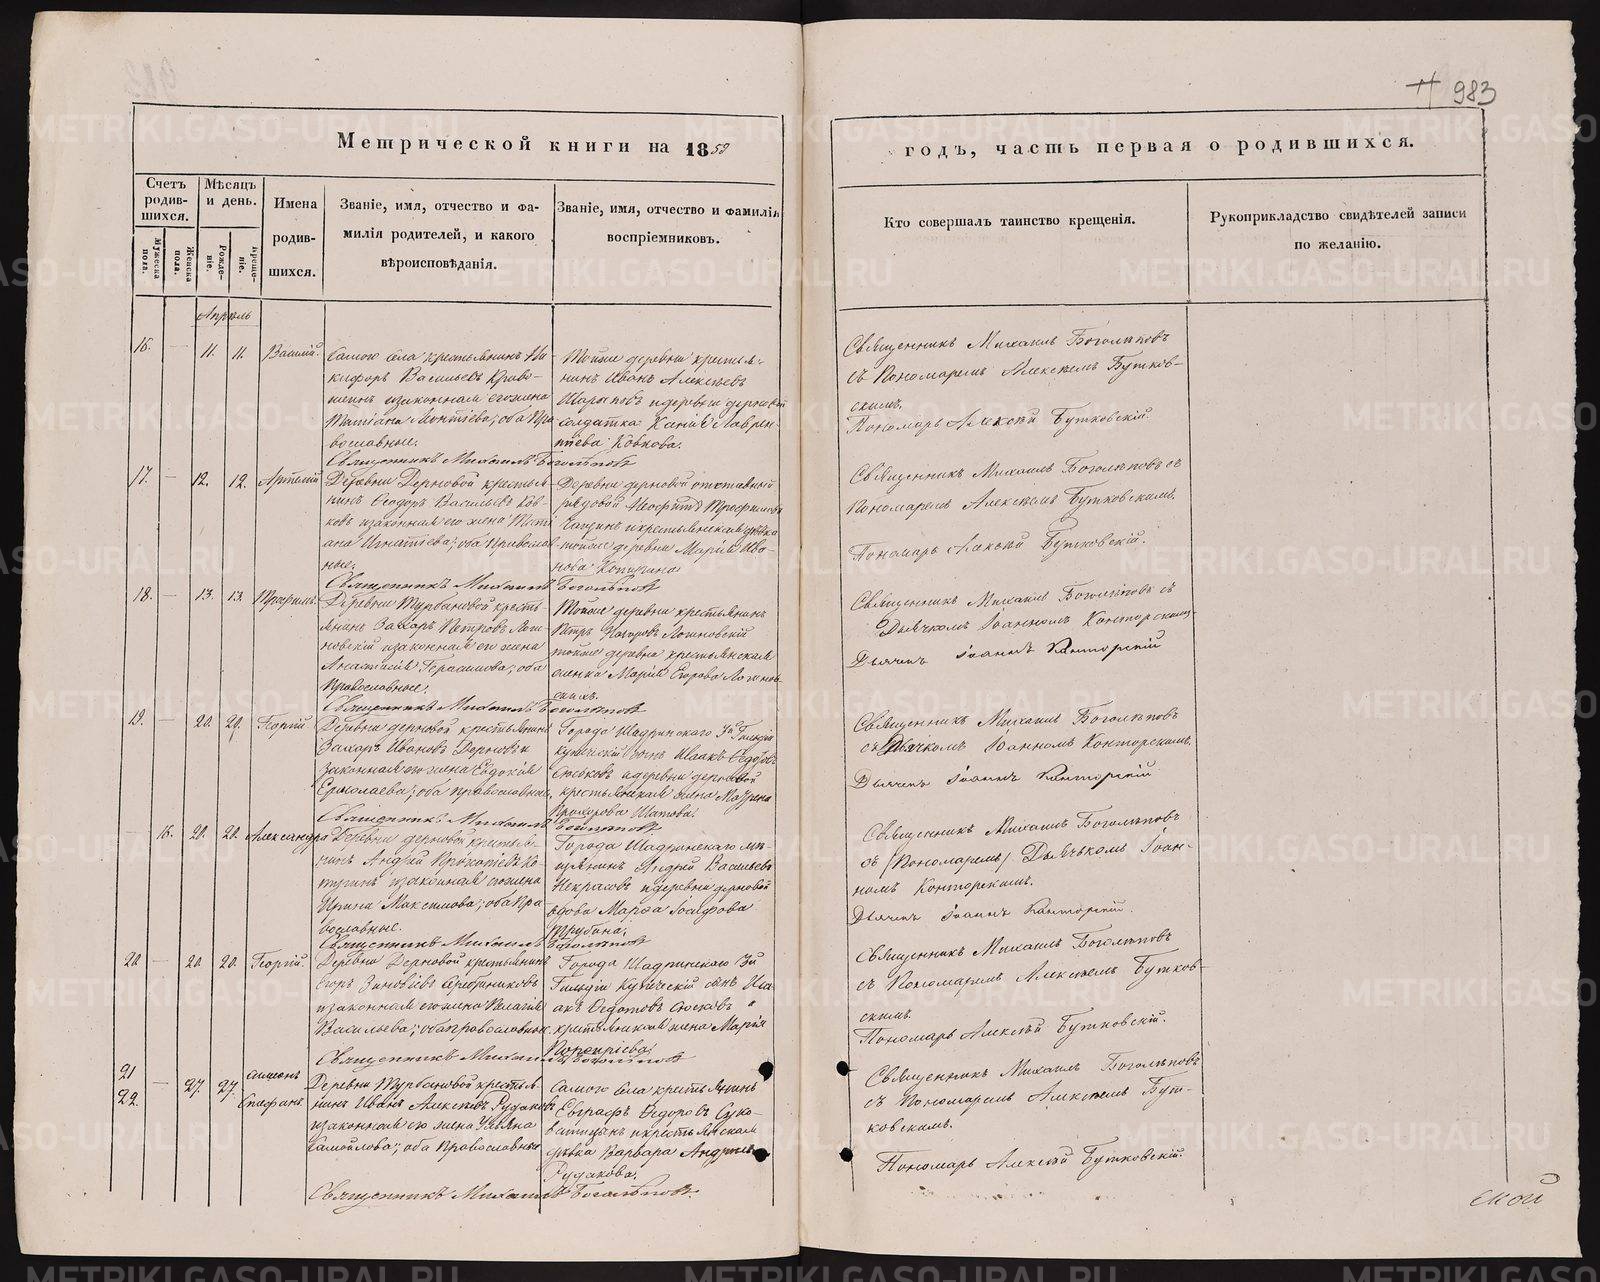 983
Метрической книги на 1858
годъ, часть первая о родившихся.
Счетъ родившихся.
Мужеска пола.
Женска пола.
Мѣсяцъ и день.
Рожденіе.
Крещеніе.
Имена родившихся.
Званіе, имя, отчество и фамилія родителей, и какого вѣроисповѣданія.
Званіе, имя, отчество и фамилія воспріемниковъ.
Кто совершалъ таинство крещенія.
Рукоприкладство свидѣтелей записи по желанію.
Апрѣль
16. — 11. 11. Василій.
Самого села крестьянинъ Ни-
кифоръ Васильевъ
законная его жена
Татіана Леонтіева; оба Пра-
вославные.
Тойже деревни крестья-
нинъ Иванъ Алексѣевъ
и деревни
солдатка Лаврен-
тіева
Священникъ Михаилъ Боголѣповъ
Священникъ Михаилъ Боголѣповъ
съ Пономаремъ Алексѣемъ Бутков-
скимъ.
Пономарь Алексѣй Бутковскій.
17. — 12. 12. Артемій
Деревни Дерновой крестья-
нинъ Ѳеодоръ Васильевъ Ков-
ковъ изаконная его жена Тати-
ана Игнатіева; оба Православ-
ные.
Деревни Дерновой отставный
рядовой Трофимовъ
икрестьянская дѣвка
тойже деревни Марія Ива-
нова
Священникъ Михаилъ Боголѣповъ
Священникъ Михаилъ Боголѣповъ съ
Пономаремъ Алексѣемъ Бутковскимъ.
Пономарь Алексѣй Бутковскій.
18. — 13. 13. Трофимъ.
Деревни Турбановой кресть-
янинъ Захаръ Петровъ Логи-
новскій изаконная его жена
Анастасія Герасимова; оба
Православные.
Тойже деревни крестьянинъ
Петръ Логиновскій
тойже деревни крестьянская
Марія Егорова Логинов-
скихъ.
Священникъ Михаилъ Боголѣповъ
Священникъ Михаилъ Боголѣповъ съ
Дьячкомъ Іоанномъ Конторскимъ
Дьячекъ Іоаннъ Конторскій
19. — 20. 20. Георгій
Деревни дерновой крестьянинъ
Захаръ Ивановъ Дерновъ и
законная его жена Евдокія
Ермолаева; оба православные.
Города Шадринскаго 3й Гильдіи
купеческій сынъ Исаакъ Ѳедотовъ
Сосковъ и деревни дерновой
крестьянская жена
Прохорова
Священникъ Михаилъ Боголѣповъ
Священникъ Михаилъ Боголѣповъ
съ Дьячкомъ Іоанномъ Конторскимъ.
Дьячекъ Іоаннъ Конторскій
— 16. 20. 20. Александра
Деревни дерновой крестья-
нинъ Андрей Прокопьевъ
изаконная его жена
Ирина Максимова; оба Пра-
вославные.
Города Шадринскаго мѣ-
щанинъ Андрей Васильевъ
Некрасовъ и деревни дерновой
вдова Марѳа Іосифова
Трубина.
Священникъ Михаилъ Боголѣповъ
Священникъ Михаилъ Боголѣповъ
съ (Пономаремъ) Дьячькомъ Іоан-
номъ Конторскимъ.
Дьячекъ Іоаннъ Конторскій.
20 — 20 20. Георгій.
Деревни Дерновой крестьянинъ
Егоръ Зиновіевъ Серебрениковъ
изаконная его жена Пелагія
Васильева; оба православные.
Города Шадринскаго 3й
Гильдіи Купеческій сынъ Иса-
акъ Ѳедотовъ Сосковъ и
крестьянская жена Марія
Священникъ Михаилъ Боголѣповъ
Священникъ Михаилъ Боголѣповъ
съ Пономаремъ Алексѣемъ Бутков-
скимъ.
Пономарь Алексѣй Бутковскій.
21
22. — 27. 27. Симеонъ
Стефанъ.
Деревни Турбановой крестья-
нинъ Иванъ Алексѣевъ Рудаковъ
изаконная его жена Ульяна
Самойлова; оба Православные
Самого Села крестьянинъ
Евграфъ Ѳедоровъ Суко-
ватицынъ икрестьянская
дѣвка Варвара Андреева
Рудакова.
Священникъ Михаилъ Боголѣповъ.
Священникъ Михаилъ Боголѣповъ
съ Пономаремъ Алексѣемъ Бут-
ковскимъ.
Пономарь Алексѣй Бутковскій.
ской
METRIKI.GASO-URAL.RU